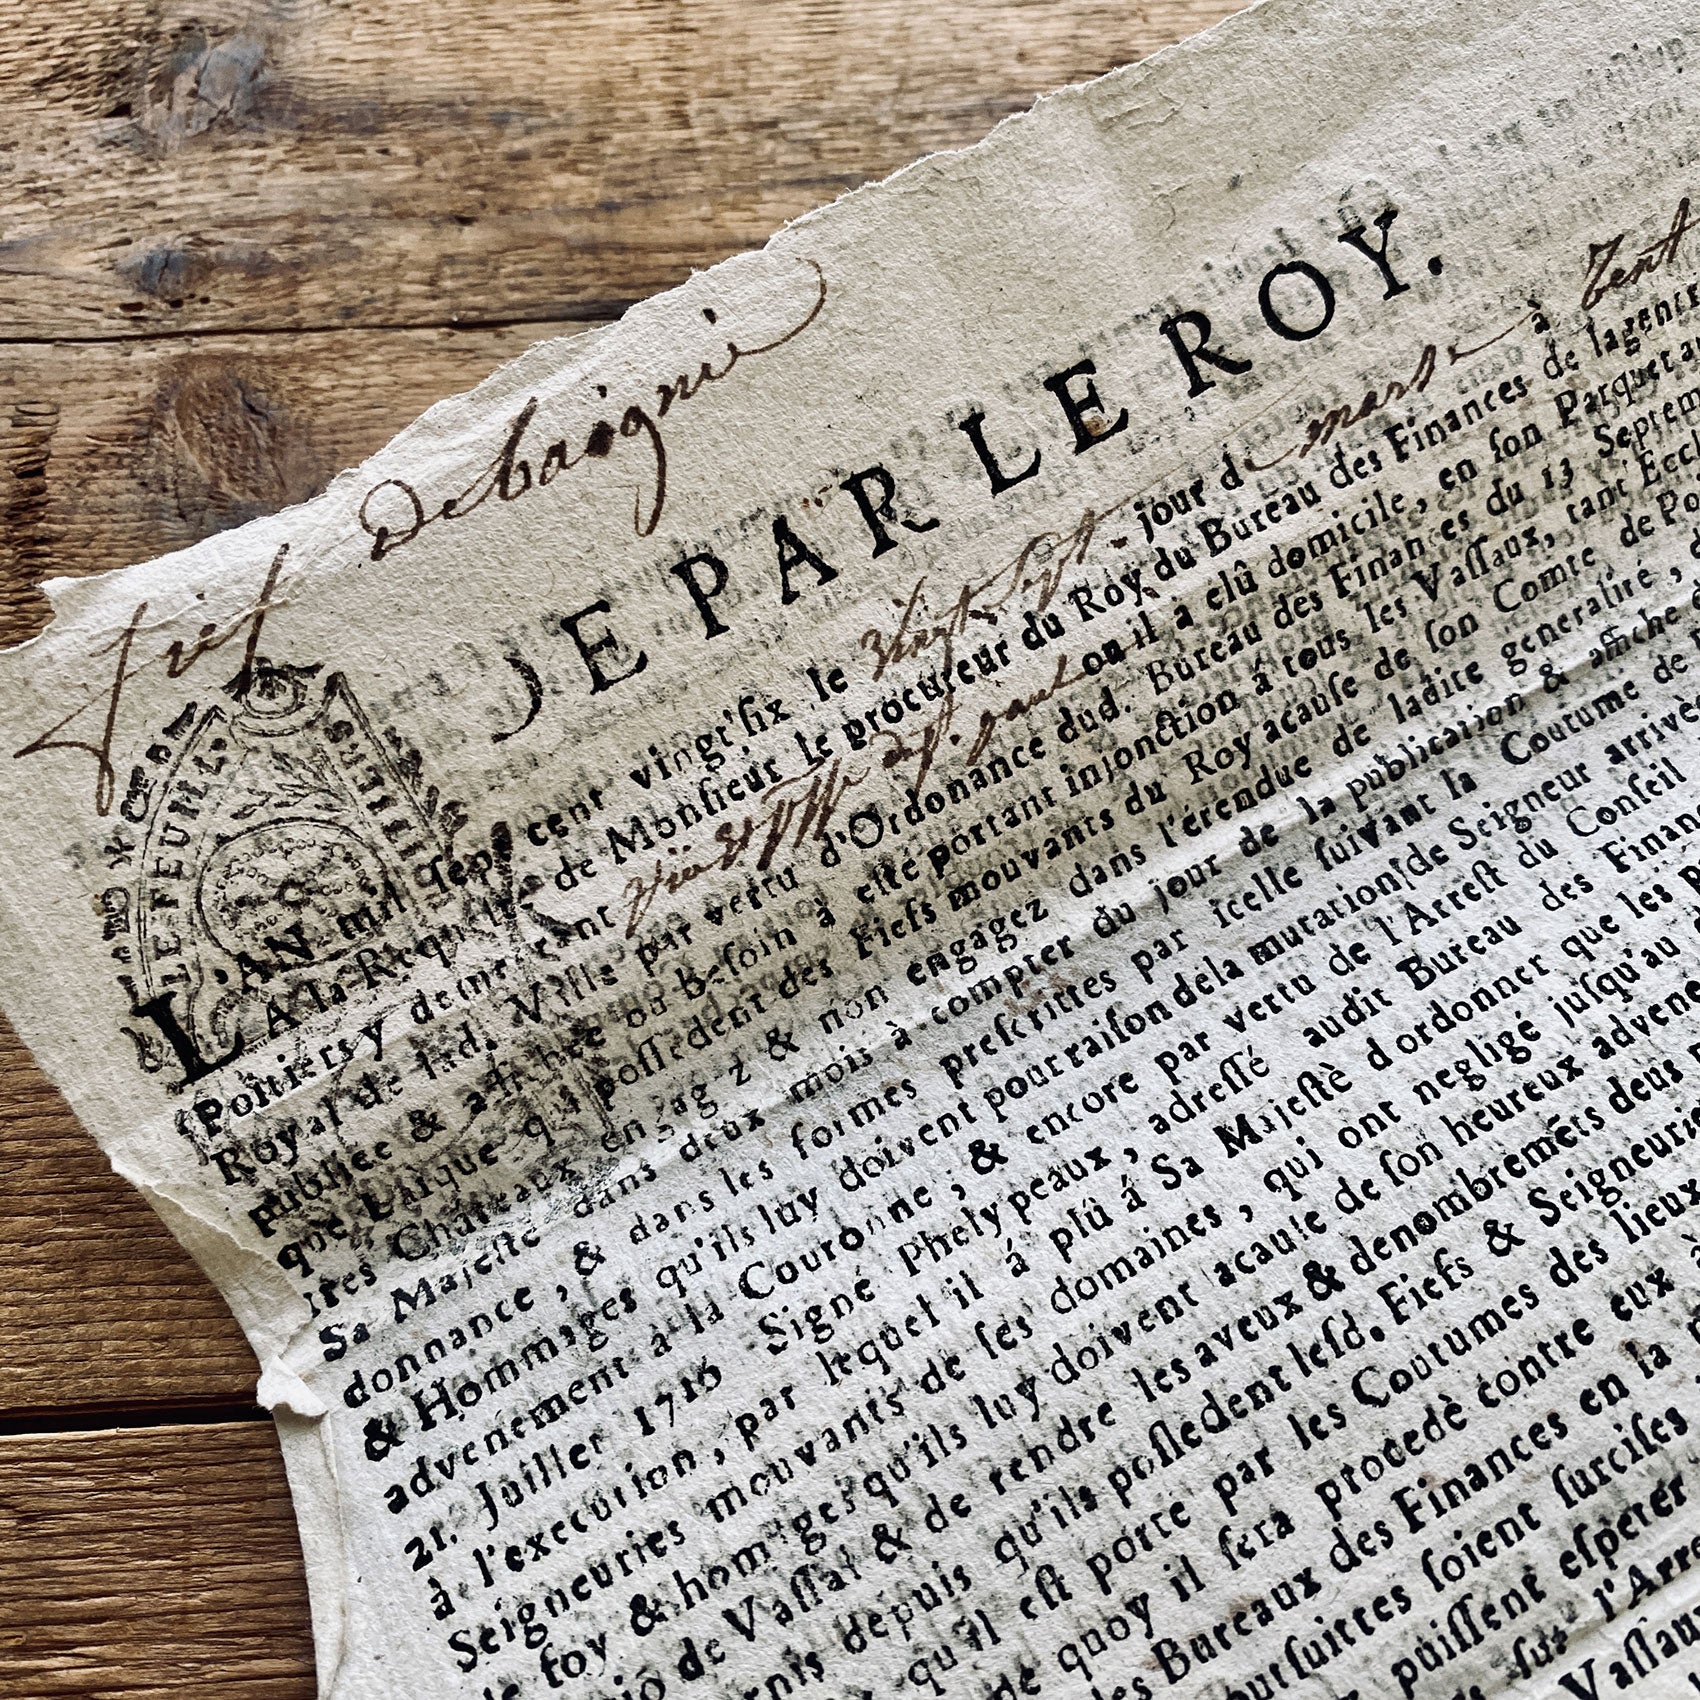 fief Debaignie
DE PAR LE ROY.
LE FEUILL
L'AN mil sept cent vingt'six le vingt sept jour d mars à
A la Requeste de Monsieur le procureur du Roy du Bureau des Finances de lagener
Poitiers y demeurant ville ptsse de st. paul ou il à elû domicile, en son Parquet au
Royal de lad. Ville par vertu d'Ordonance dud. Bureau des Finances du 13 Septem
publiee & affichée ou besoin à esté portant injonction á tous les Vassaux, tant Eccl
que Laique qui possedent des Fiefs mouvants du Roy acause de son Comte de Po
tres Châteaux engagez & non engagez dans l'étenduë de ladite generalité, d
Sa Majesté dans deux mois à compter du jour de la publication & affiche
donnance, & dans les formes prescrittes par icelle suivant la Coutume de
& Hommages qu'ils luy doivent pour raison de la mutation de Seigneur arrivè
advenement à la Couronne; & encore par vertu de l'Arrest du Conseil
21. Juillet 1716 Signé Phelypeaux, adressé audit Bureau des Finan
à l'execution, par lequel il á plû á Sa Majestè d'ordonner que les
Seigneuries mouvants de ses domaines, qui ont negligé jusqu'au
foy & homages qu'ils luy doivent acause de son heureux advene
de Vassal & de rendre les aveux & denombremẽts deus
depuis qu'ils possedent lesd. Fiefs & Seigneurie
qu'il est porté par les Coutumes des lieux
de quoy il sera procedè contre eux à
les Bureaux des Finances en la
poursuittes soient surcises
puissent esperer
sur l'Arre
Vassau